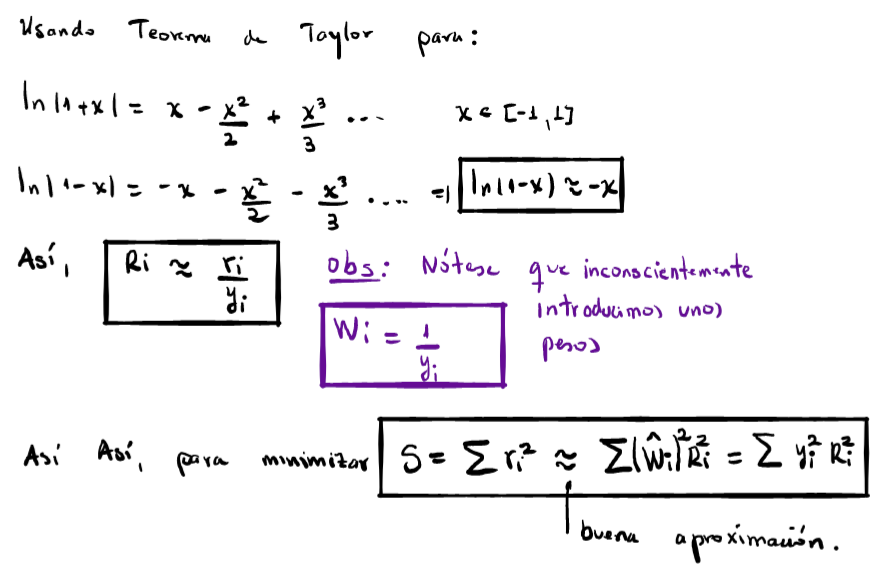 Usando Teorema de Taylor para:
ln|1+x| = x - x²/2 + x³/3 ... x ∈ [-1,1]
ln|1-x| = -x - x²/2 - x³/3 .... =| ln(1-x) ≈ -x
Así, Ri ≈ ri/yi
Obs: Nótese que inconscientemente
introducimos unos
pesos
Wi = 1/yi
Así Así, para minimizar S = Σ ri² ≈ Σ(Ŵi)² Ri² = Σ yi² Ri²
buena aproximación.